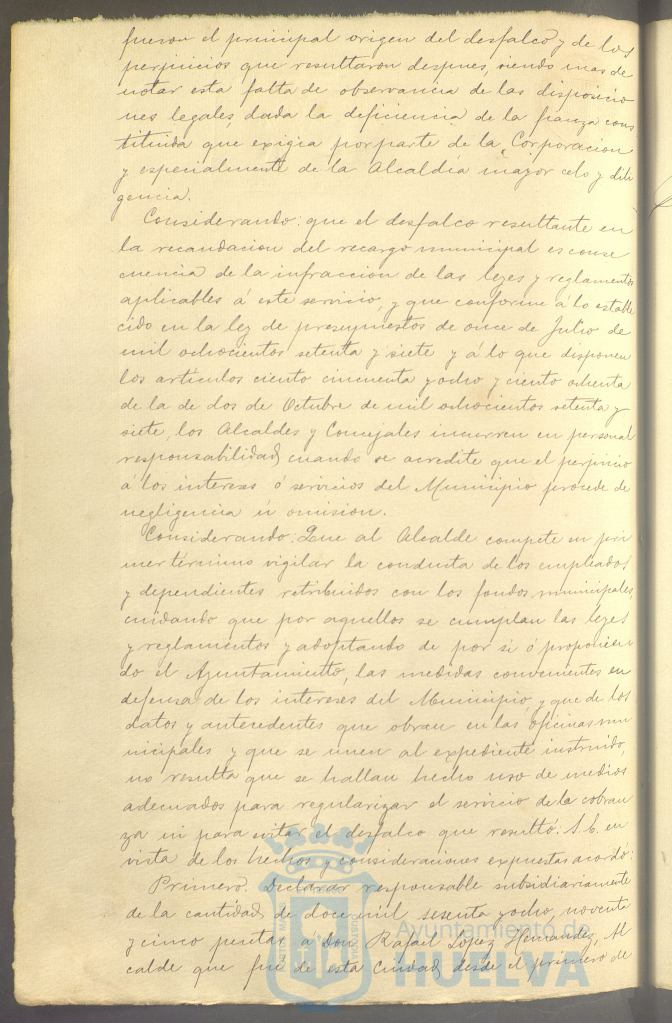 fueron el principal origen del desfalco y de los
perjuicios que resultaron despues, siendo mas de
notar esta falta de observancia de las disposicio
nes legales, dada la deficiencia de la fianza cons
tituida que exigia por parte de la Corporacion
y especialmente de la Alcaldía mayor celo y dili
gencia.
Considerando: que el desfalco resultante en
la recaudacion del recargo municipal es conse
cuencia de la infraccion de las leyes y reglamentos
aplicables á este servicio, y que conforme á lo estable
cido en la ley de presupuestos de once de Julio de
mil ochocientos setenta y siete y á lo que disponen
los articulos ciento cincuenta y ocho y ciento ochenta
de la de dos de Octubre de mil ochocientos setenta y
siete, los Alcaldes y Concejales incurren en personal
responsabilidad cuando se acredite que el perjuicio
á los intereses ó servicios del Municipio procede de
negligencia ú omision.
Considerando: Que al Alcalde compete en pri
mer término vigilar la conducta de los empleados
y dependientes retribuidos con los fondos municipales,
cuidando que por aquellos se cumplan las leyes
y reglamentos y adoptando de por si ó proponien
do el Ayuntamiento, las medidas convenientes en
defensa de los intereses del Municipio, y que de los
datos y antecedentes que obran en las oficinas mu
nicipales y que se unen al expediente instruido,
no resulta que se hallan hecho uso de medios
adecuados para regularizar el servicio de la cobran
za ni para evitar el desfalco que resultó. S. E. en
vista de los hechos y consideraciones expuestas acordó:
Primero. Declarar responsable subsidiariamente
de la cantidad de doce mil sesenta y ocho, noventa
y cinco pesetas a Don Rafael López Hernandez, Al
calde que fué de esta Ciudad desde el primero de
Ayuntamiento de
HUELVA